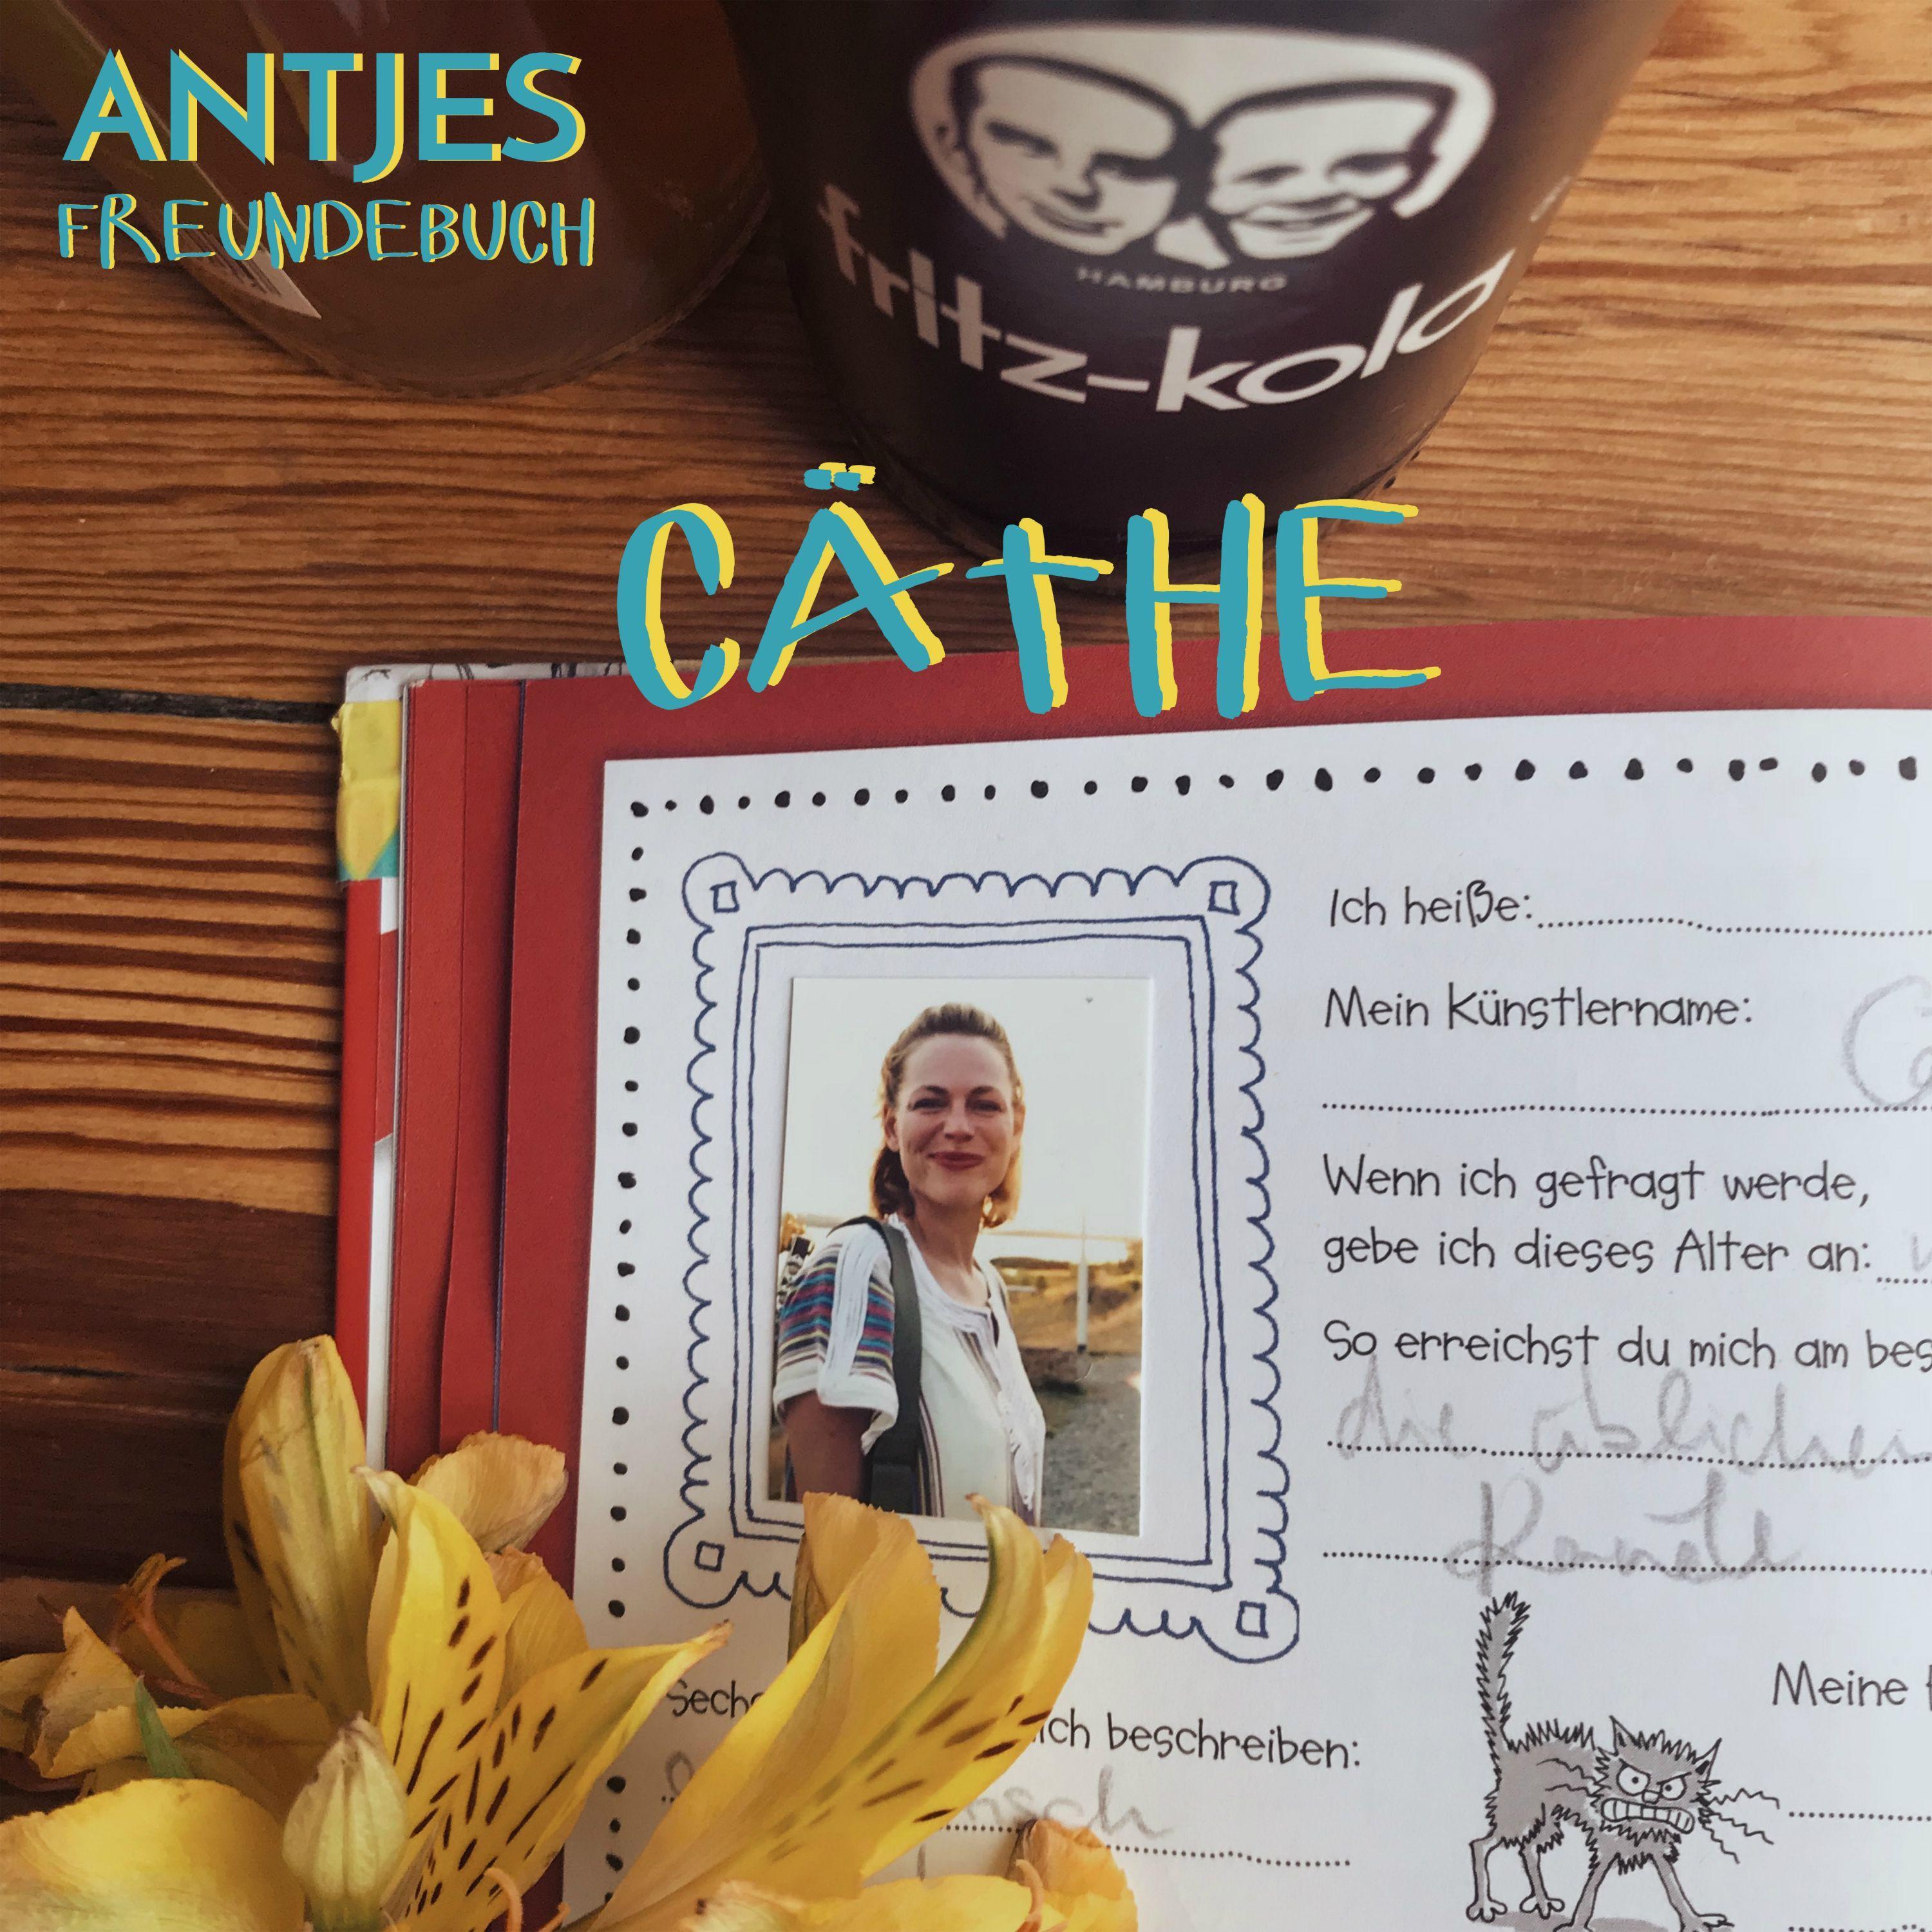 ANTJES
FREUNDEBUCH
HAMBURG
fritz-kola
CÄTHE
Ich heiße:
Mein Künstlername:
Wenn ich gefragt werde,
gebe ich dieses Alter an:
So erreichst du mich am bes
die üblichen
Kanäle
Meine
ich beschreiben: